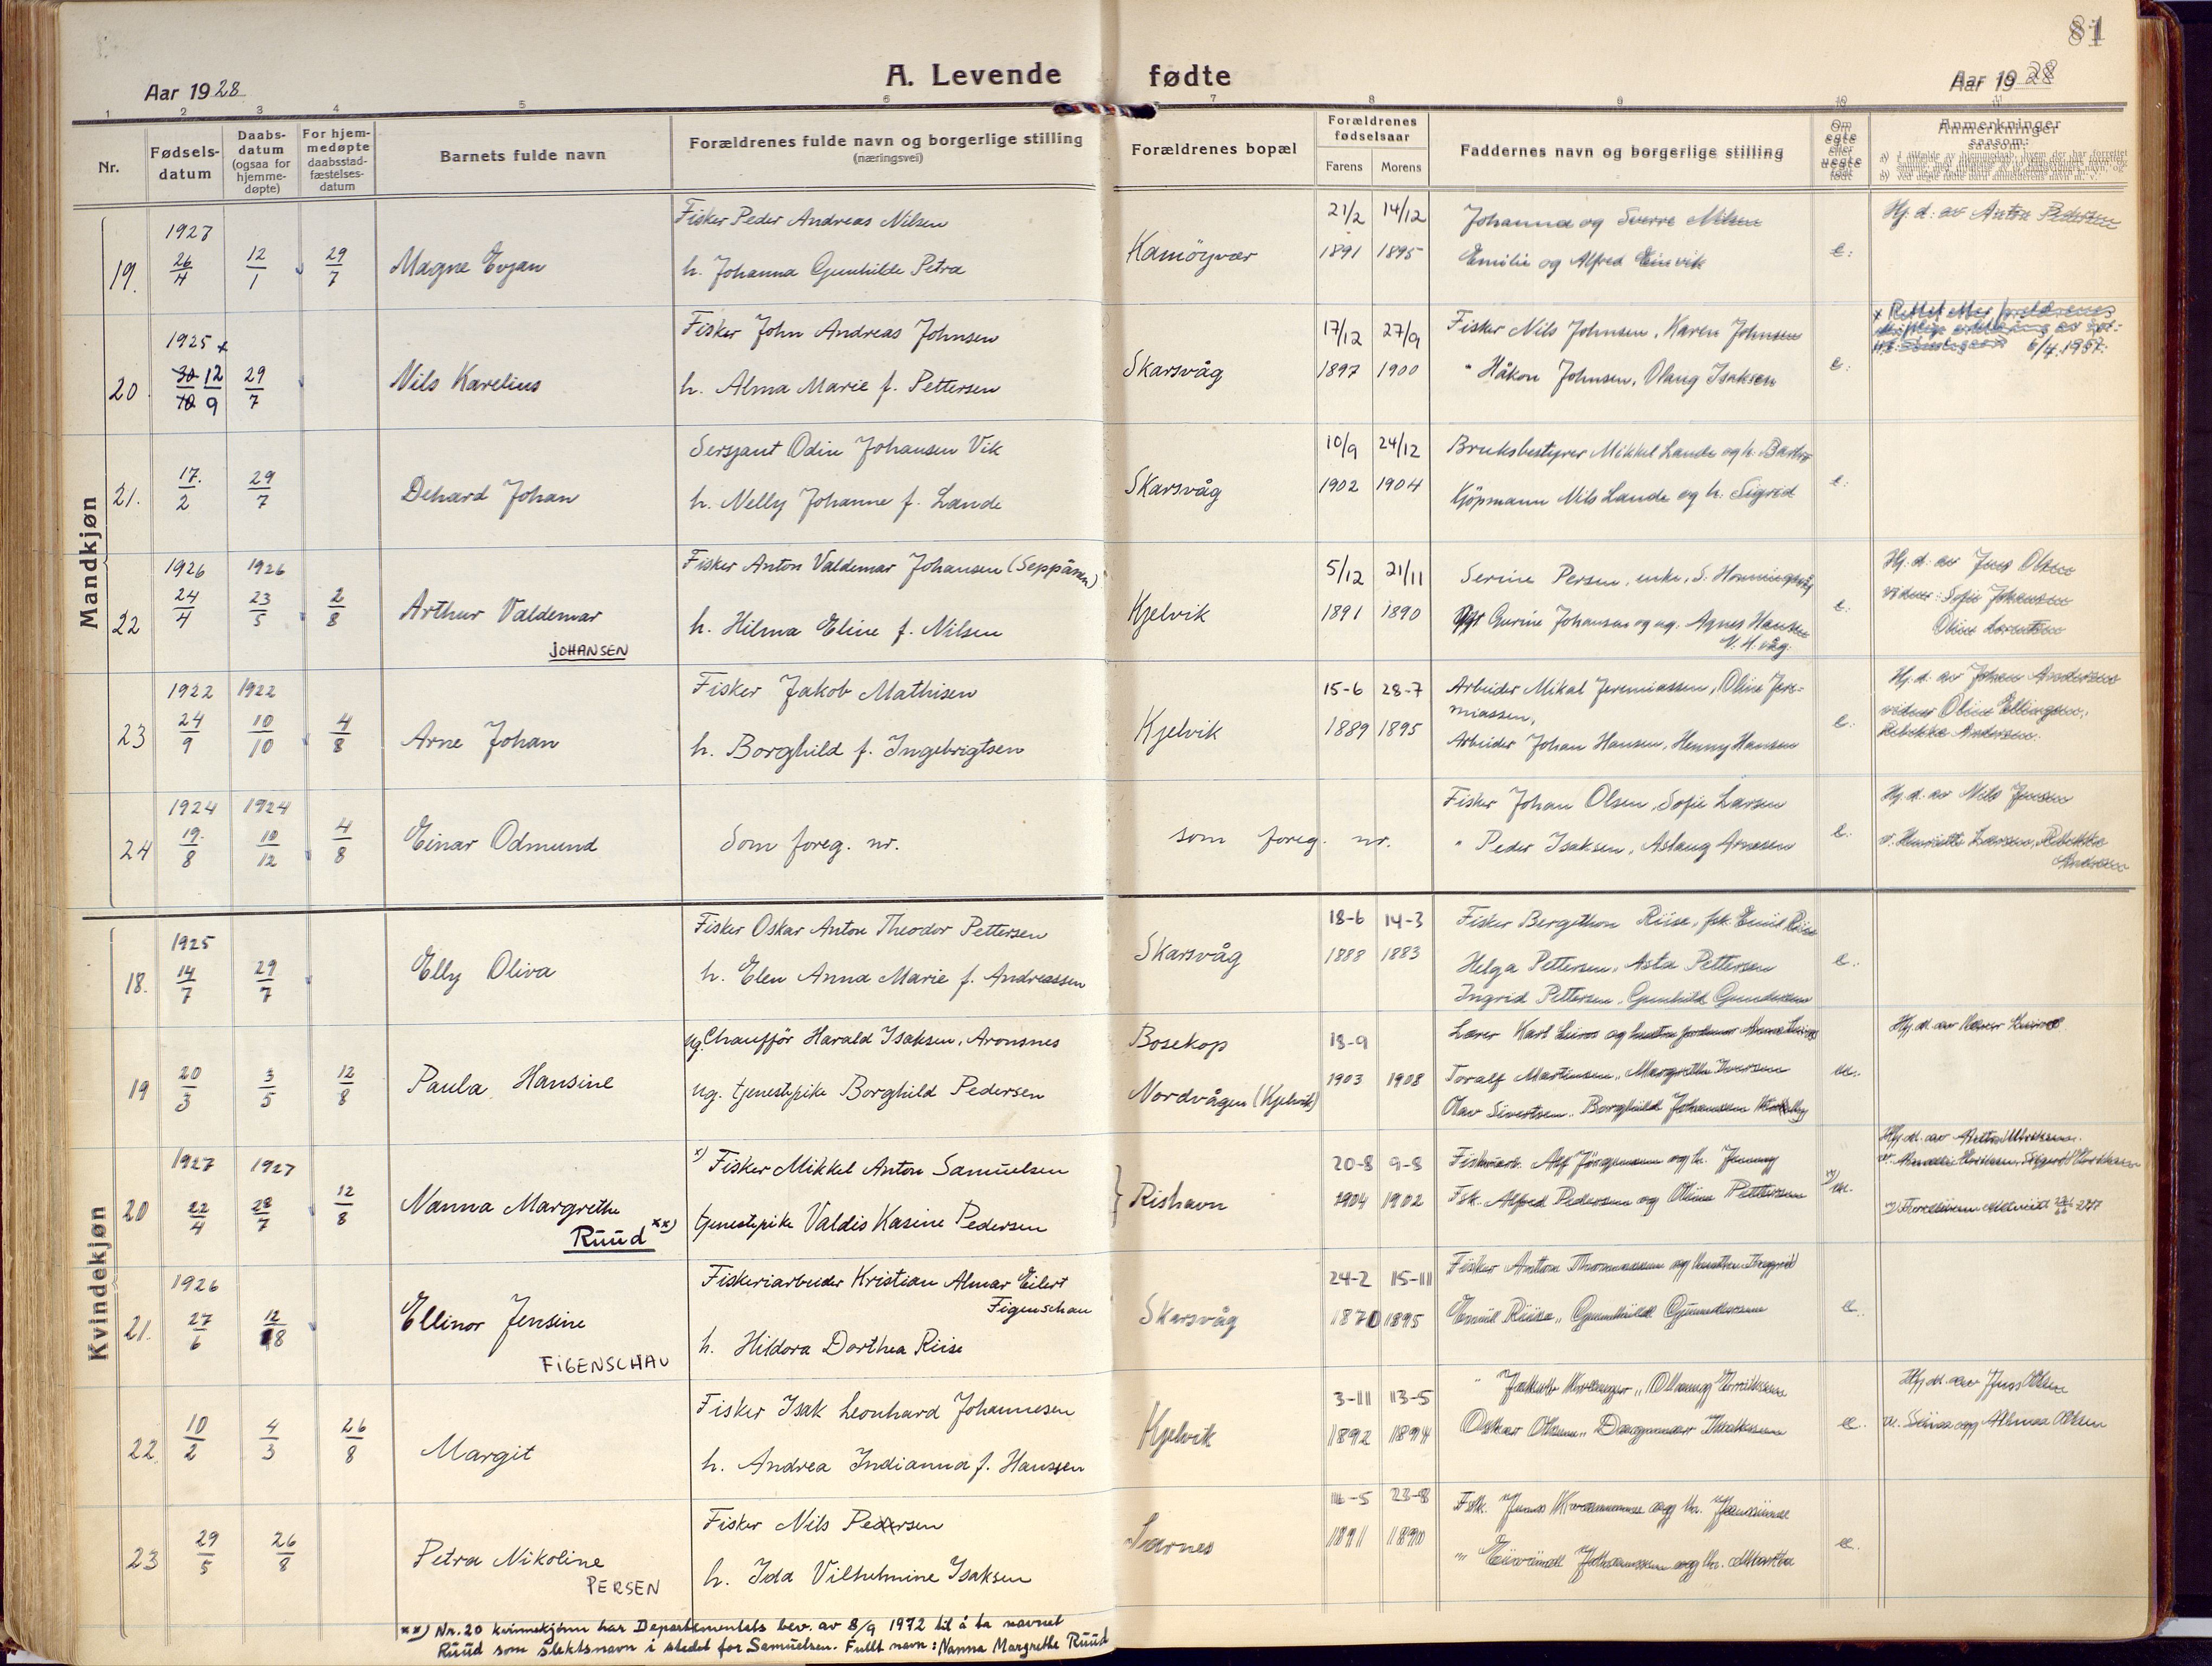 81
Aar 1928
A. Levende fødte
Aar 1928
1 2 3 4 5 6 7 8 9 10 11
Nr.
Fødsels-datum
Daabs-datum (ogsaa for hjemme-døpte)
For hjem-medøpte daabsstad-fæstelses-datum
Barnets fulde navn
Forældrenes fulde navn og borgerlige stilling
(næringsvei)
Forældrenes bopæl
Forældrenes fødselsaar
Farens Morens
Faddernes navn og borgerlige stilling
Om egte eller uegte født
Anmerkninger
saasom:
Mandkjøn
1927 Fisker Peder Andreas Nilsen 21/2 14/12 Johanna og Sverre Nilsen Hj. d: av Anton Pedersen
19. 26/4 12/1 29/7 Magne Evjan h. Johanna Gunhilde Petra Kamøyvær 1891 1895 Emilie og Alfred Einvik e:
1925 x Fisker John Andreas Johnsen 17/12 27/9 Fisker Nils Johnsen, Karen Johnsen x Rettet etter foreldrenes
skriftlige erklæring av
6/4.1957.
20 30/10 12/9 29/7 Nils Karelius h. Alma Marie f. Pettersen Skarsvåg 1897 1900 " Håkon Johnsen, Olaug Isaksen e:
Sersjant Odin Johansen Vik 10/9 24/12 Bruksbestyrer Mikkel Lande og h.
21. 17./2 29/7 Dehard Johan h. Nelly Johanne f. Lande Skarsvåg 1902 1904 Kjøpmann Nils Lande og h. Sigrid e:
1926 1926 Fisker Anton Valdemar Johansen (Seppänen) 5/12 21/11 Serine Persen, enke, S. Honningsvåg Hj. d. av Jens Olsen
22 24/4 23/5 2/8 Arthur Valdemar h. Hilma Eline f. Nilsen Kjelvik 1891 1890 Gurine Johansen og ug. Agnes Hansen e: vidner: Sofie Johansen
JOHANSEN Oline Lorentsen
1922 1922 Fisker Jakob Mathisen 15-6 28-7 Arbeider Mikal Jeremiassen, Oline Jere-
miassen, Hj. d. av Johan Andersen
23 24/9 10/10 4/8 Arne Johan h. Borghild f. Ingebrigtsen Kjelvik 1889 1895 Arbeider Johan Hansen, Henny Hansen e: vidner Oline Ellingsen,
Rebekka Andersen.
1924 1924 Fisker Johan Olsen, Sofie Larsen Hj. d. av Nils Jensen
24 19./8 10/12 4/8 Einar Odmund Som foreg. nr. som foreg. nr. " Peder Isaksen, Aslaug Arnesen e: v. Henriette Larsen, Rebekka
Andersen
Kvindekjøn
1925 Fisker Oskar Anton Theodor Pettersen 18-6 14-3 Fisker Bergithon Riise, fsk. Emil Riise
18. 14/7 29/7 Elly Oliva h. Elen Anna Marie f. Andreassen Skarsvåg 1888 1883 Helga Pettersen, Asta Pettersen e.
Ingrid Pettersen, Gunhild Gundersen
ug. Chauffør Harald Isaksen, Aronsnes Bosekop 18-9 Lærer Karl Leiros og Hj. d. av lærer Leiros
19 20/3 3/5 12/8 Paula Hansine ug. tjenestepike Borghild Pedersen Nordvågen (Kjelvik) 1903 1908 Toralf Martinsen, Margrethe Iversen ue.
Olav Sivertsen, Borghild Johansen
1927 1927 x) Fisker Mikkel Anton Samuelsen 20-8 9-8 Fiskeriarb. Alf Jørgensen og h. Jenny Hj. d. av
20 22/4 28/7 12/8 Nanna Margrethe tjenestepike Valdis Kasine Pedersen } Rishavn 1904 1902 Fsk. Alfred Pedersen og Oline Pettersen x) ue.
Ruud xx)
1926 Fiskeriarbeider Kristian Almar Eilert Figenschau 24-2 15-11 Fisker Anton Thomassen og hustru Ingrid
21. 27/6 12/8 Ellinor Jensine h. Hildora Dorthea Riise Skarsvåg 1870 1895 Emil Riise, Gunhild Gundersen e.
FIGENSCHAU
Fisker Isak Leonhard Johannesen 3-11 13-5 Hj. d. av Jens Olsen
22. 10/2 4/3 26/8 Margit h. Andrea Indianna f. Hansen Kjelvik 1892 1894 Oskar Olsen, Dagmar Isaksen e.
Fisker Nils Pedersen 16-5 23-8 Fsk. Jens
23 29/5 26/8 Petra Nikoline h. Ida Vilhelmine Isaksen Sarnes 1891 1890 " Eivind Johansen og h. Martha e.
PERSEN
xx) Nr. 20 kvinnekjønn har Departementets bev. av 8/9 1972 til å ta navnet
Ruud som slektsnavn i stedet for Samuelsen. Fullt navn: Nanna Margrethe Ruud